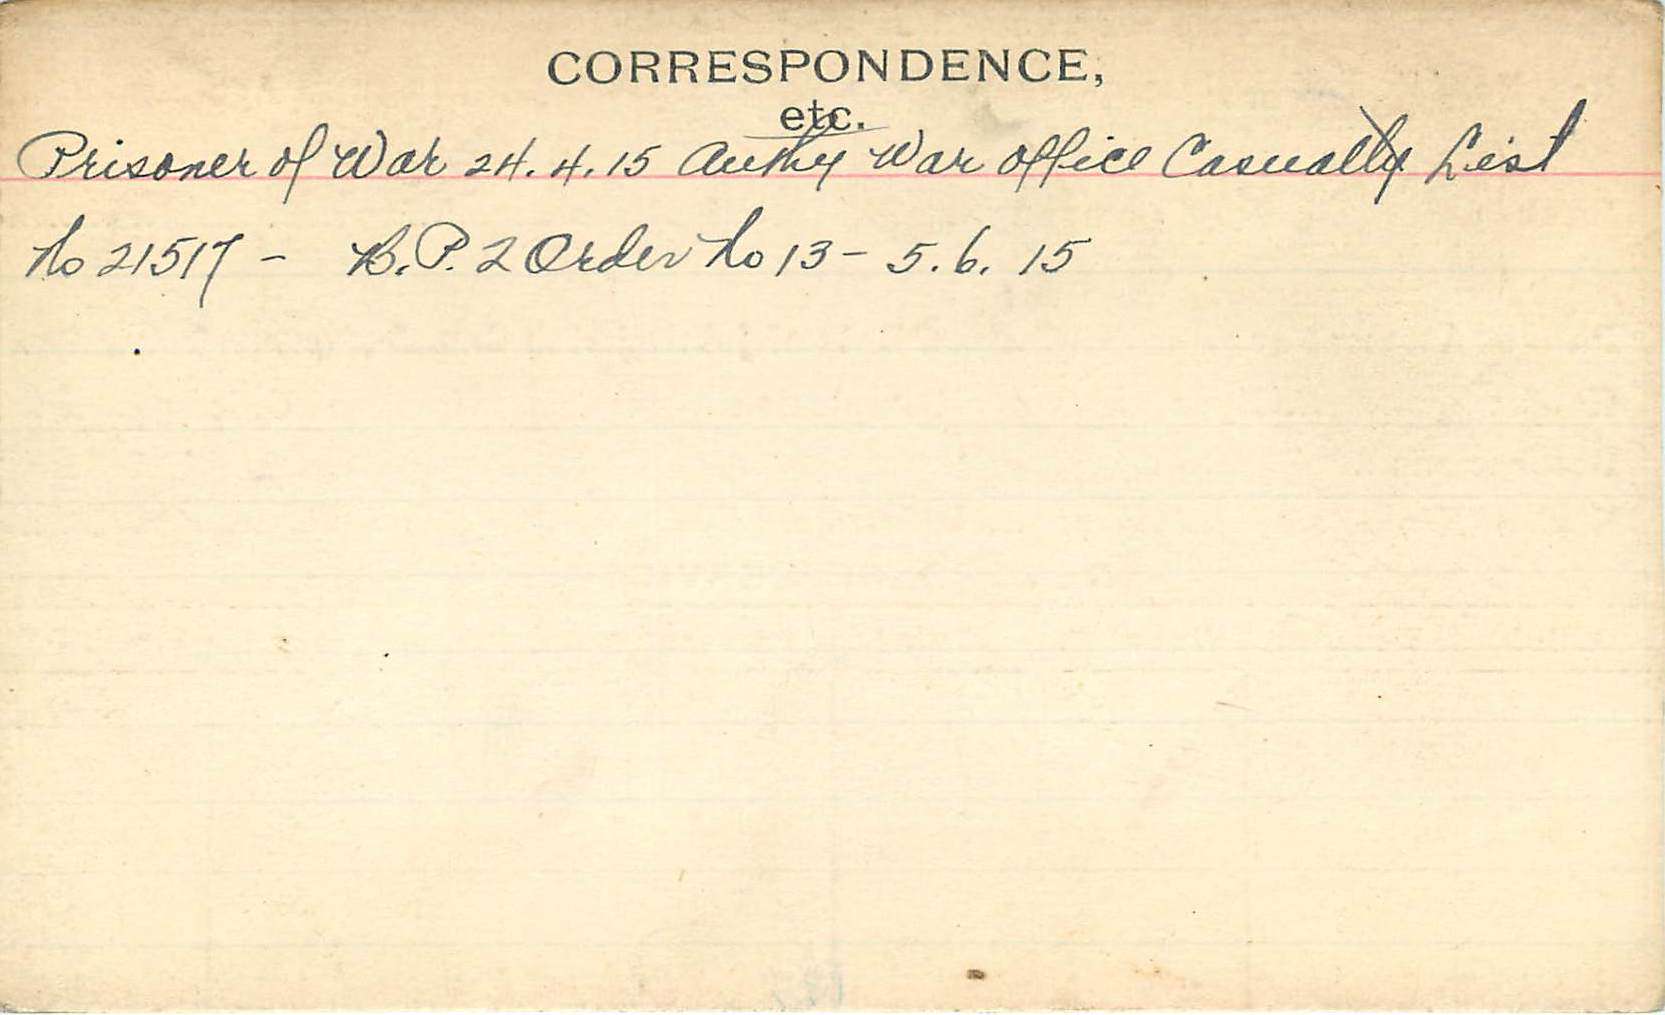 CORRESPONDENCE,
etc.
Prisoner of War 24.4.15 Authy War Office Casualty List
No 21517 - B.P. 2 Order No 13 - 5.6.15